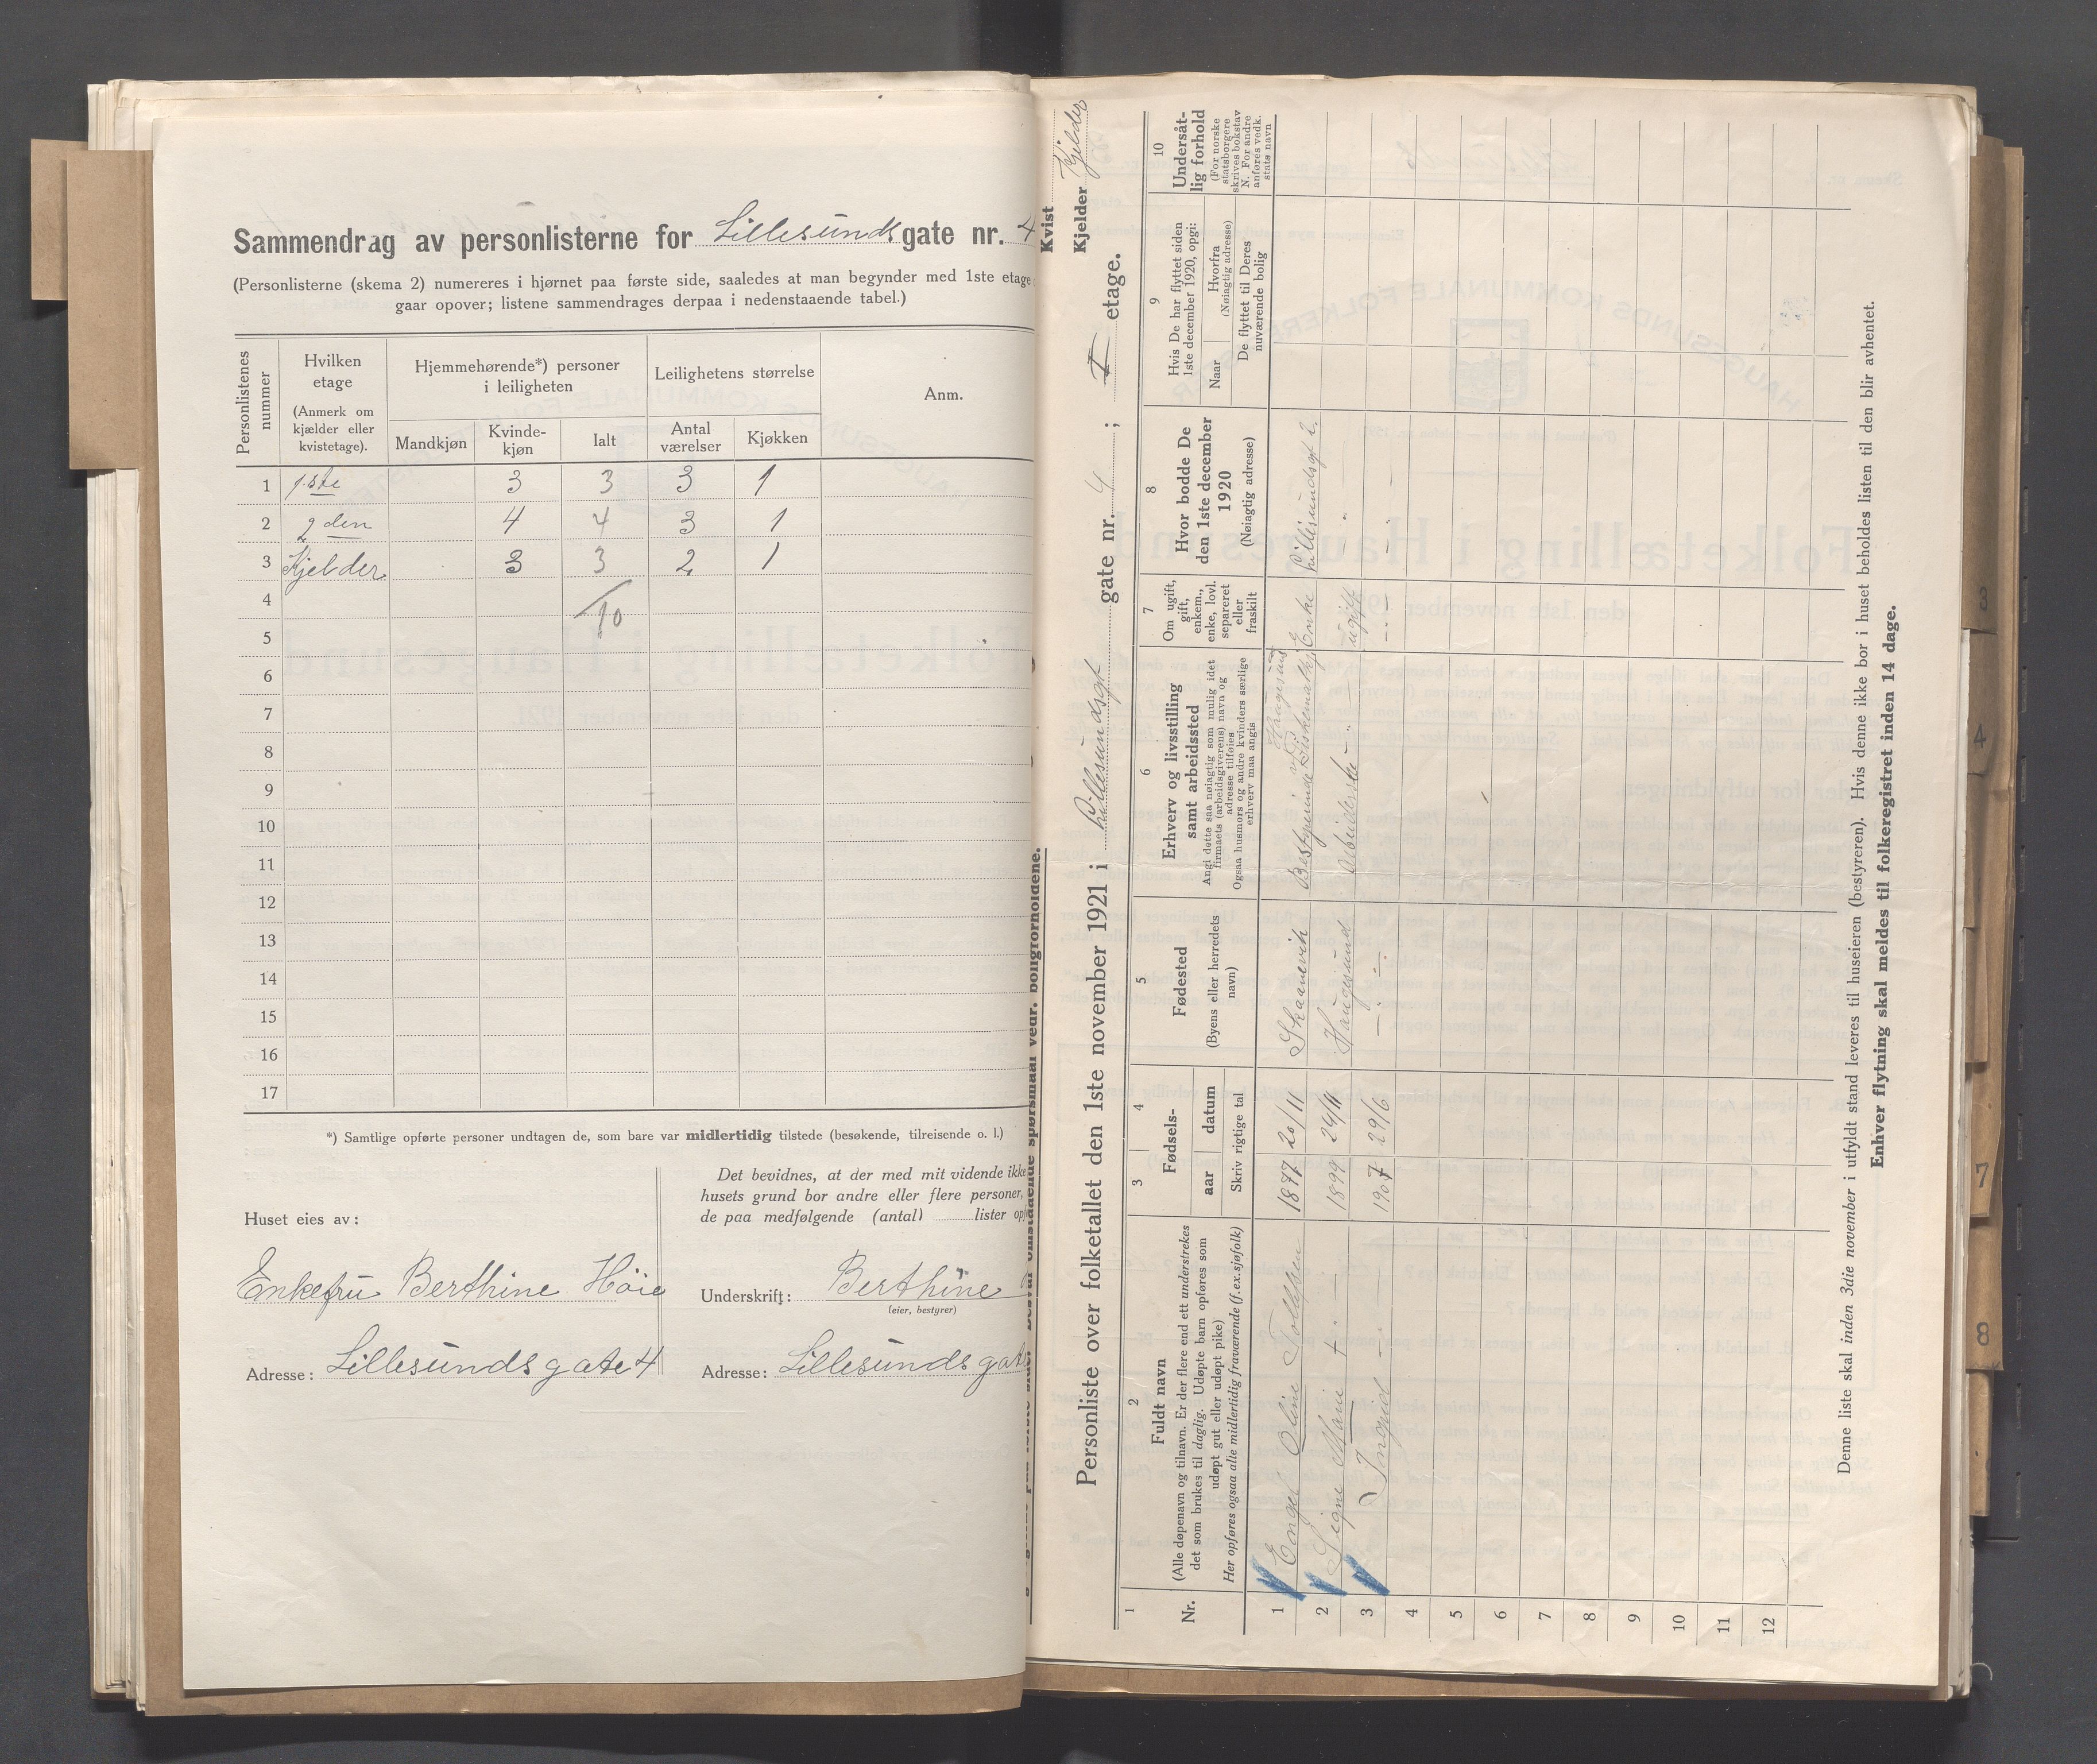 Sammendrag av personlisterne for Lillesunds gate nr. 4
(Personlisterne (skema 2) numereres i hjørnet paa første side, saaledes at man begynder med 1ste etage
gaar opover; listene sammendrages derpaa i nedenstaaende tabel.)
Personlistenes nummer
Hvilken etage
(Anmerk om kjælder eller kvistetage).
Hjemmehørende*) personer i leiligheten
Mandkjøn Kvinde-kjøn Ialt
Leilighetens størrelse
Antal værelser Kjøkken
Anm.
1 1ste 3 3 3 1
2 2den 4 4 3 1
3 Kjelder 3 3 2 1
4 10
5
6
7
8
9
10
11
12
13
14
15
16
17
*) Samtlige opførte personer undtagen de, som bare var midlertidig tilstede (besøkende, tilreisende o. l.)
Huset eies av:
Enkefru Berthine Höie
Adresse: Lillesunds gate 4
Det bevidnes, at der med mit vidende ikke
husets grund bor andre eller flere personer,
de paa medfølgende (antal) lister
Underskrift: Berthine
(eier, bestyrer)
Adresse: Lillesunds gate
Kvist
Kjelder Kjelder
Personliste over folketallet den 1ste november 1921 i Lillesundsgt gate nr. 4 ; I etage.
1
Nr.
2
Fuldt navn
(Alle døpenavn og tilnavn. Er der flere end ett understrekes
det som brukes til daglig. Udøpte barn opføres som
udøpt gut eller udøpt pike)
Her opføres ogsaa alle midlertidig fraværende (f.ex.sjøfolk)
3 4
Fødsels-
aar datum
Skriv rigtige tal
5
Fødested
(Byens eller herredets navn)
6
Erhverv og livsstilling
samt arbeidssted
Angi dette saa nøiagtig som mulig idet
firmaets (arbeidsgiverens) navn og
adresse tilføies
Ogsaa husmors og andre kvinders særlige
erhverv maa angis
7
Om ugift,
gift,
enkem.,
enke, lovl.
separeret
eller
fraskilt
8
Hvor bodde De
den 1ste december
1920
(Nøiagtig adresse)
9
Hvis De har flyttet siden
1ste december 1920, opgi:
Naar
Hvorfra
(Nøiagtig adresse)
De flyttet til Deres
nuværende bolig
10
Undersåt-
lig forhold
(For norske
statsborgere
skrives bokstav
N. For andre
anføres vedk.
stats navn
1 Engel Oline Tollefsen 1877 20/11 Skaanevik Bestyrerinde Haugesund Enke Lillesundsgt 2.
2 Signe Marie 1899 24/11 Haugesund Arbeiderske ugift
3 Ingrid 1907 29/6
4
5
6
7
8
9
10
11
12
Denne liste skal inden 3die november i utfyldt stand leveres til huseieren (bestyreren). Hvis denne ikke bor i huset beholdes listen til den blir avhentet.
Enhver flytning skal meldes til folkeregistret inden 14 dage.
3
4
7
8